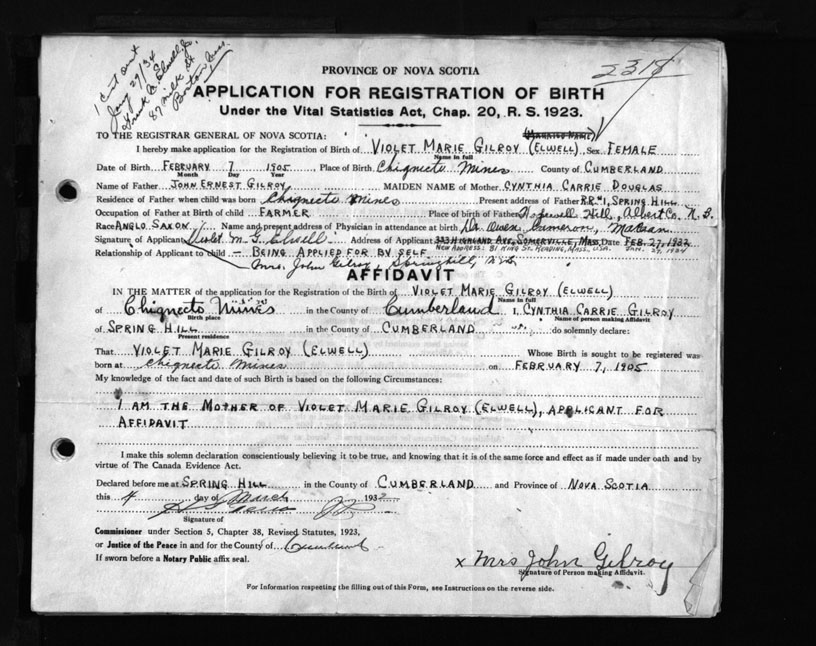 1 Cert sent
Jany 29/34
Frank C. Elwell Jr.
87 Milk St.
Boston, Mass.
2318
PROVINCE OF NOVA SCOTIA
APPLICATION FOR REGISTRATION OF BIRTH
Under the Vital Statistics Act, Chap. 20, R. S. 1923.
(MARRIED NAME)
TO THE REGISTRAR GENERAL OF NOVA SCOTIA:
I hereby make application for the Registration of Birth of VIOLET MARIE GILROY (ELWELL) Sex FEMALE
Name in full
Date of Birth FEBRUARY 7 1905, Place of Birth Chignecto Mines County of CUMBERLAND
Month Day Year
Name of Father JOHN ERNEST GILROY MAIDEN NAME of Mother CYNTHIA CARRIE DOUGLAS
Residence of Father when child was born Chignecto Mines Present address of Father R.R.#1, SPRING HILL
Occupation of Father at Birth of child FARMER Place of birth of Father Hopewell Hill, Albert Co. N. B.
Race ANGLO SAXON Name and present address of Physician in attendance at birth Dr Owen Cameron, Maccan
Signature of Applicant Violet M. G. Elwell Address of Applicant 323 HIGHLAND AVE, SOMERVILLE, MASS. Date FEB. 27, 1932
NEW ADDRESS: 81 KING ST. READING, MASS, USA. JAN. 27, 1934
Relationship of Applicant to child - BEING APPLIED FOR BY SELF
Mrs. John Gilroy, Springhill, N.S.
AFFIDAVIT
IN THE MATTER of the application for the Registration of the Birth of VIOLET MARIE GILROY (ELWELL)
Name in full
of Chignecto Mines in the County of Cumberland I, CYNTHIA CARRIE GILROY
Birth place Name of person making Affidavit
of SPRING HILL in the County of CUMBERLAND do solemnly declare:
Present residence
That VIOLET MARIE GILROY (ELWELL) Whose Birth is sought to be registered was
born at Chignecto Mines on FEBRUARY 7, 1905
My knowledge of the fact and date of such Birth is based on the following Circumstances:
I AM THE MOTHER OF VIOLET MARIE GILROY (ELWELL), APPLICANT FOR
AFFIDAVIT
I make this solemn declaration conscientiously believing it to be true, and knowing that it is of the same force and effect as if made under oath and by
virtue of The Canada Evidence Act.
Declared before me at SPRING HILL in the County of CUMBERLAND and Province of NOVA SCOTIA
this 4 day of March 1932
Signature of
Commissioner under Section 5, Chapter 38, Revised Statutes, 1923,
or Justice of the Peace in and for the County of Cumberland
If sworn before a Notary Public affix seal.
x Mrs John Gilroy
Signature of Person making Affidavit.
For Information respecting the filling out of this Form, see Instructions on the reverse side.